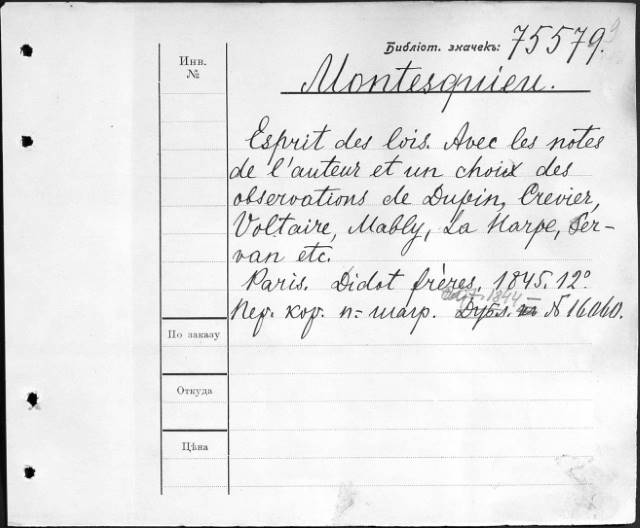 Библіот. значекъ: 75579.
Инв.
№
Montesquieu.
Esprit des lois. Avec les notes
de l'auteur et un choix des
observations de Dupin, Crevier,
Voltaire, Mably, La Harpe, Ser-
van etc.
Paris. Didot frères. 1845. 12º
édit. 1844
Пер. кор. п= шагр. Дубл. N 16060.
По заказу
Откуда
Цѣна